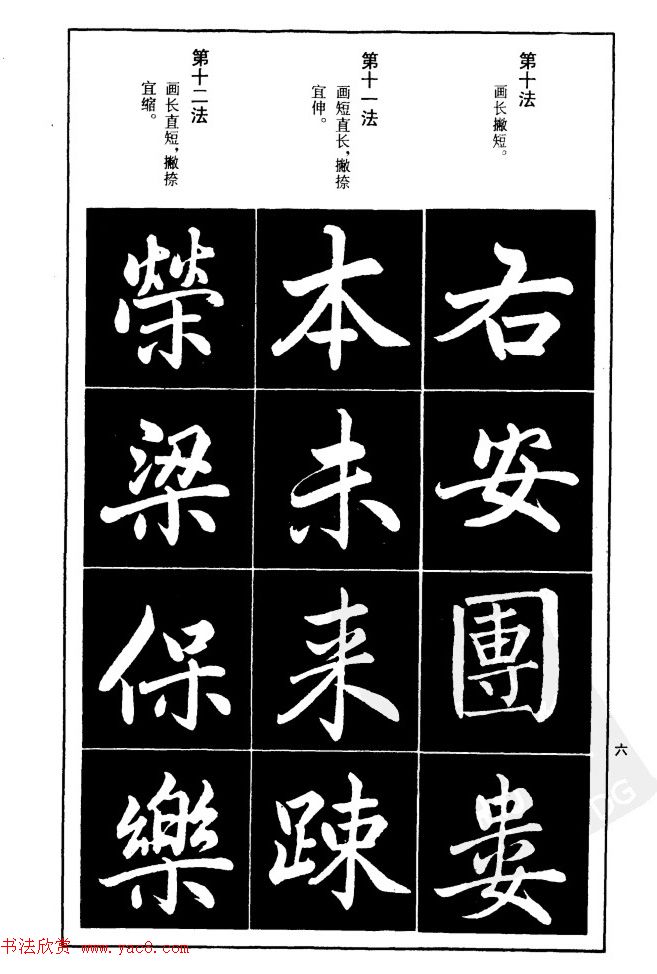 第十法
画长撇短。
右
安
團
婁
第十一法
画短直长，撇捺
宜伸。
本
未
来
踈
第十二法
画长直短，撇捺
宜缩。
榮
梁
保
樂
六
书法欣赏 www.yac8.com